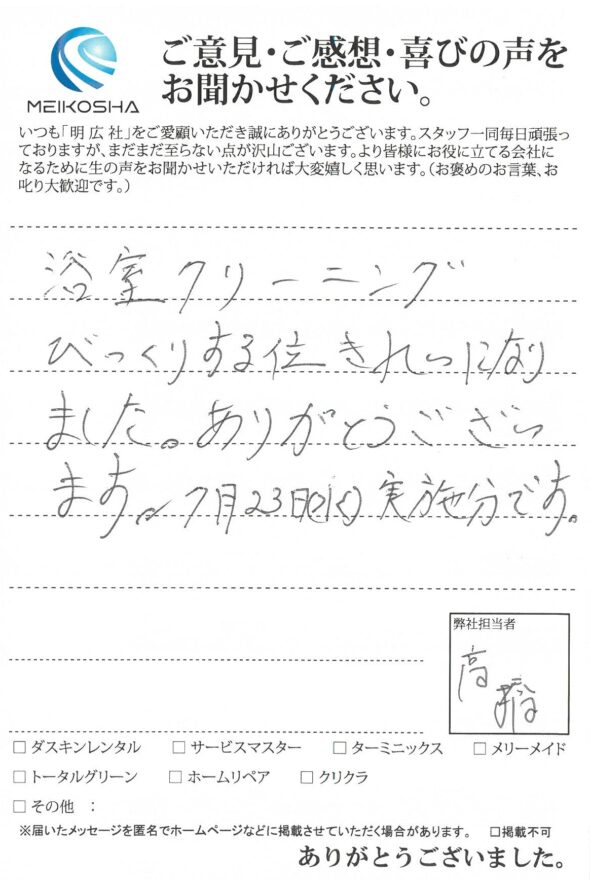 MEIKOSHA
ご意見・ご感想・喜びの声を
お聞かせください。
いつも「明広社」をご愛顧いただき誠にありがとうございます。スタッフ一同毎日頑張っ
ておりますが、まだまだ至らない点が沢山ございます。より皆様にお役に立てる会社に
なるために生の声をお聞かせいただければ大変嬉しく思います。(お褒めのお言葉、お
叱り大歓迎です。)
浴室クリーニング
びっくりする位きれいになり
ました。ありがとうござい
ます。7月23日(水)実施分です。
弊社担当者
高
□ ダスキンレンタル □ サービスマスター □ ターミニックス □ メリーメイド
□ トータルグリーン □ ホームリペア □ クリクラ
□ その他 :
※届いたメッセージを匿名でホームページなどに掲載させていただく場合があります。 □掲載不可
ありがとうございました。